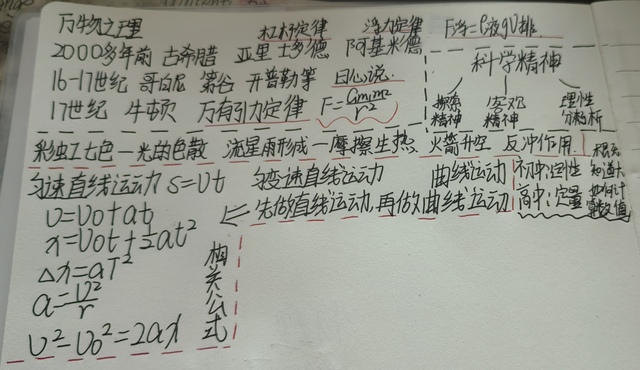 万物之理
杠杆定律 浮力定律 F浮=ρ液gV排
2000多年前 古希腊 亚里士多德 阿基米德
16-17世纪 哥白尼 第谷 开普勒等 日心说.
17世纪 牛顿 万有引力定律 F=Gm₁m₂/r²
科学精神
探索精神 客观精神 理性分析
彩虹工七色—光的色散 流星雨形成—摩擦生热 火箭升空 反冲作用
匀速直线运动 S=Vt 匀变速直线运动 曲线运动
先做直线运动,再做曲线运动
初中:定性
高中:定量
知道大
数值
V=V0+at
x=V0t+½at²
Δx=aT²
a=V²/r
V²V0²=2ax
相关公式